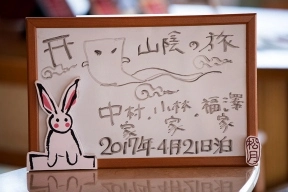 山陰の旅
中村家・小林家・福澤家
2017年4月21日泊
松月